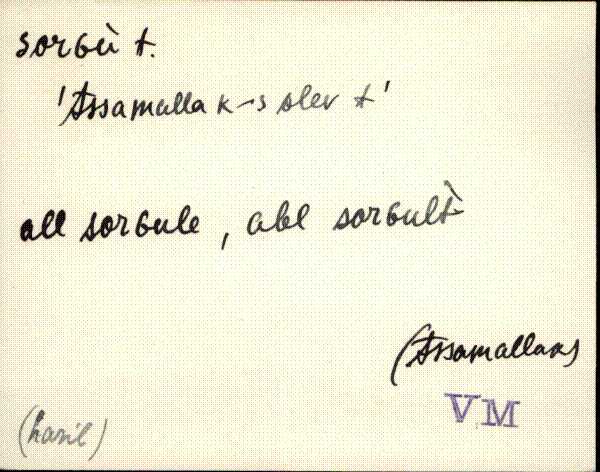 sorgù t.
'Assamalla k-s olev t'
all sorgule, abl sorgult̀
(Assamallas)
VM
(haril)